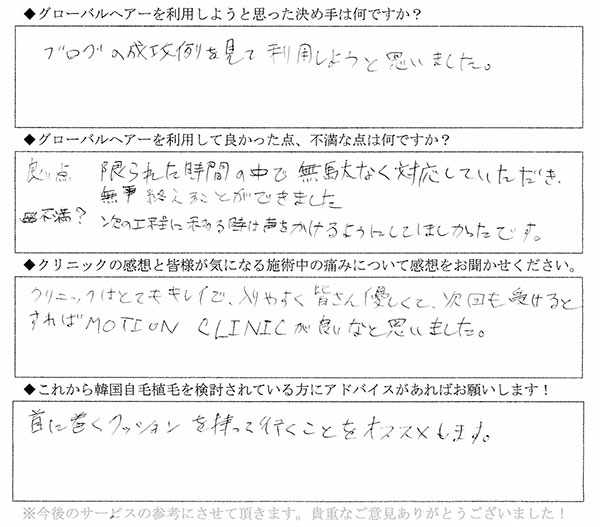 ◆グローバルヘアーを利用しようと思った決め手は何ですか？
ブログの成功例を見て利用しようと思いました。
◆グローバルヘアーを利用して良かった点、不満な点は何ですか？
良い点 限られた時間の中で無駄なく対応していただき、
無事終えることができました
不満？ 次の工程に移る時は声をかけるようにしてほしかったです。
◆クリニックの感想と皆様が気になる施術中の痛みについて感想をお聞かせください。
クリニックはとてもキレイで、入りやすく皆さん優しくて、次回も受けると
すればMOTION CLINICが良いなと思いました。
◆これから韓国自毛植毛を検討されている方にアドバイスがあればお願いします！
首に巻くクッションを持って行くことをオススメします。
※今後のサービスの参考にさせて頂きます。貴重なご意見ありがとうございました！